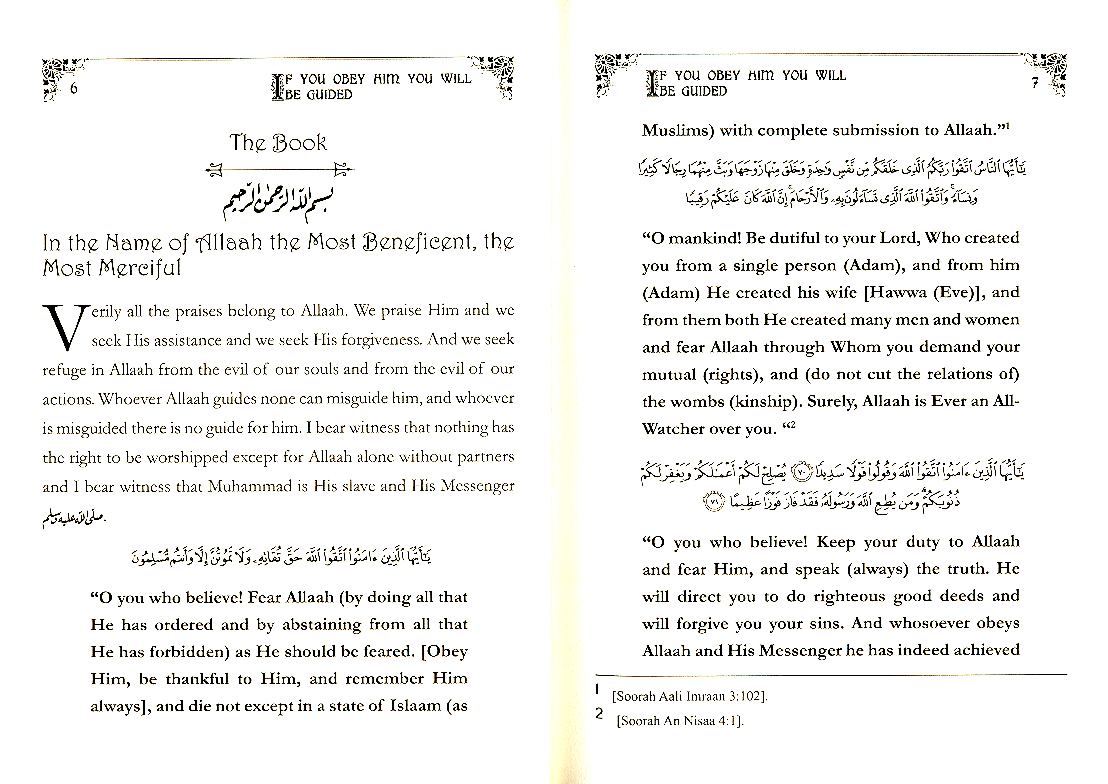 6
IF YOU OBEY HIM YOU WILL
BE GUIDED
The Book
بسم الله الرحمن الرحيم
In the Name of Allaah the Most Beneficent, the
Most Merciful
Verily all the praises belong to Allaah. We praise Him and we
seek His assistance and we seek His forgiveness. And we seek
refuge in Allaah from the evil of our souls and from the evil of our
actions. Whoever Allaah guides none can misguide him, and whoever
is misguided there is no guide for him. I bear witness that nothing has
the right to be worshipped except for Allaah alone without partners
and I bear witness that Muhammad is His slave and His Messenger
صلى الله عليه وسلم.
يَـٰٓأَيُّهَا ٱلَّذِينَ ءَامَنُوا۟ ٱتَّقُوا۟ ٱللَّهَ حَقَّ تُقَاتِهِۦ وَلَا تَمُوتُنَّ إِلَّا وَأَنتُم مُّسْلِمُونَ
“O you who believe! Fear Allaah (by doing all that
He has ordered and by abstaining from all that
He has forbidden) as He should be feared. [Obey
Him, be thankful to Him, and remember Him
always], and die not except in a state of Islaam (as
IF YOU OBEY HIM YOU WILL
BE GUIDED
7
Muslims) with complete submission to Allaah.”1
يَـٰٓأَيُّهَا ٱلنَّاسُ ٱتَّقُوا۟ رَبَّكُمُ ٱلَّذِى خَلَقَكُم مِّن نَّفْسٍ وَٰحِدَةٍ وَخَلَقَ مِنْهَا زَوْجَهَا وَبَثَّ مِنْهُمَا رِجَالًا كَثِيرًا
وَنِسَآءً ۚ وَٱتَّقُوا۟ ٱللَّهَ ٱلَّذِى تَسَآءَلُونَ بِهِۦ وَٱلْأَرْحَامَ ۚ إِنَّ ٱللَّهَ كَانَ عَلَيْكُمْ رَقِيبًا
“O mankind! Be dutiful to your Lord, Who created
you from a single person (Adam), and from him
(Adam) He created his wife [Hawwa (Eve)], and
from them both He created many men and women
and fear Allaah through Whom you demand your
mutual (rights), and (do not cut the relations of)
the wombs (kinship). Surely, Allaah is Ever an All-
Watcher over you. “2
يَـٰٓأَيُّهَا ٱلَّذِينَ ءَامَنُوا۟ ٱتَّقُوا۟ ٱللَّهَ وَقُولُوا۟ قَوْلًا سَدِيدًا ﴿٧٠﴾ يُصْلِحْ لَكُمْ أَعْمَـٰلَكُمْ وَيَغْفِرْ لَكُمْ
ذُنُوبَكُمْ ۗ وَمَن يُطِعِ ٱللَّهَ وَرَسُولَهُۥ فَقَدْ فَازَ فَوْزًا عَظِيمًا ﴿٧١﴾
“O you who believe! Keep your duty to Allaah
and fear Him, and speak (always) the truth. He
will direct you to do righteous good deeds and
will forgive you your sins. And whosoever obeys
Allaah and His Messenger he has indeed achieved
1 [Soorah Aali Imraan 3:102].
2 [Soorah An Nisaa 4:1].